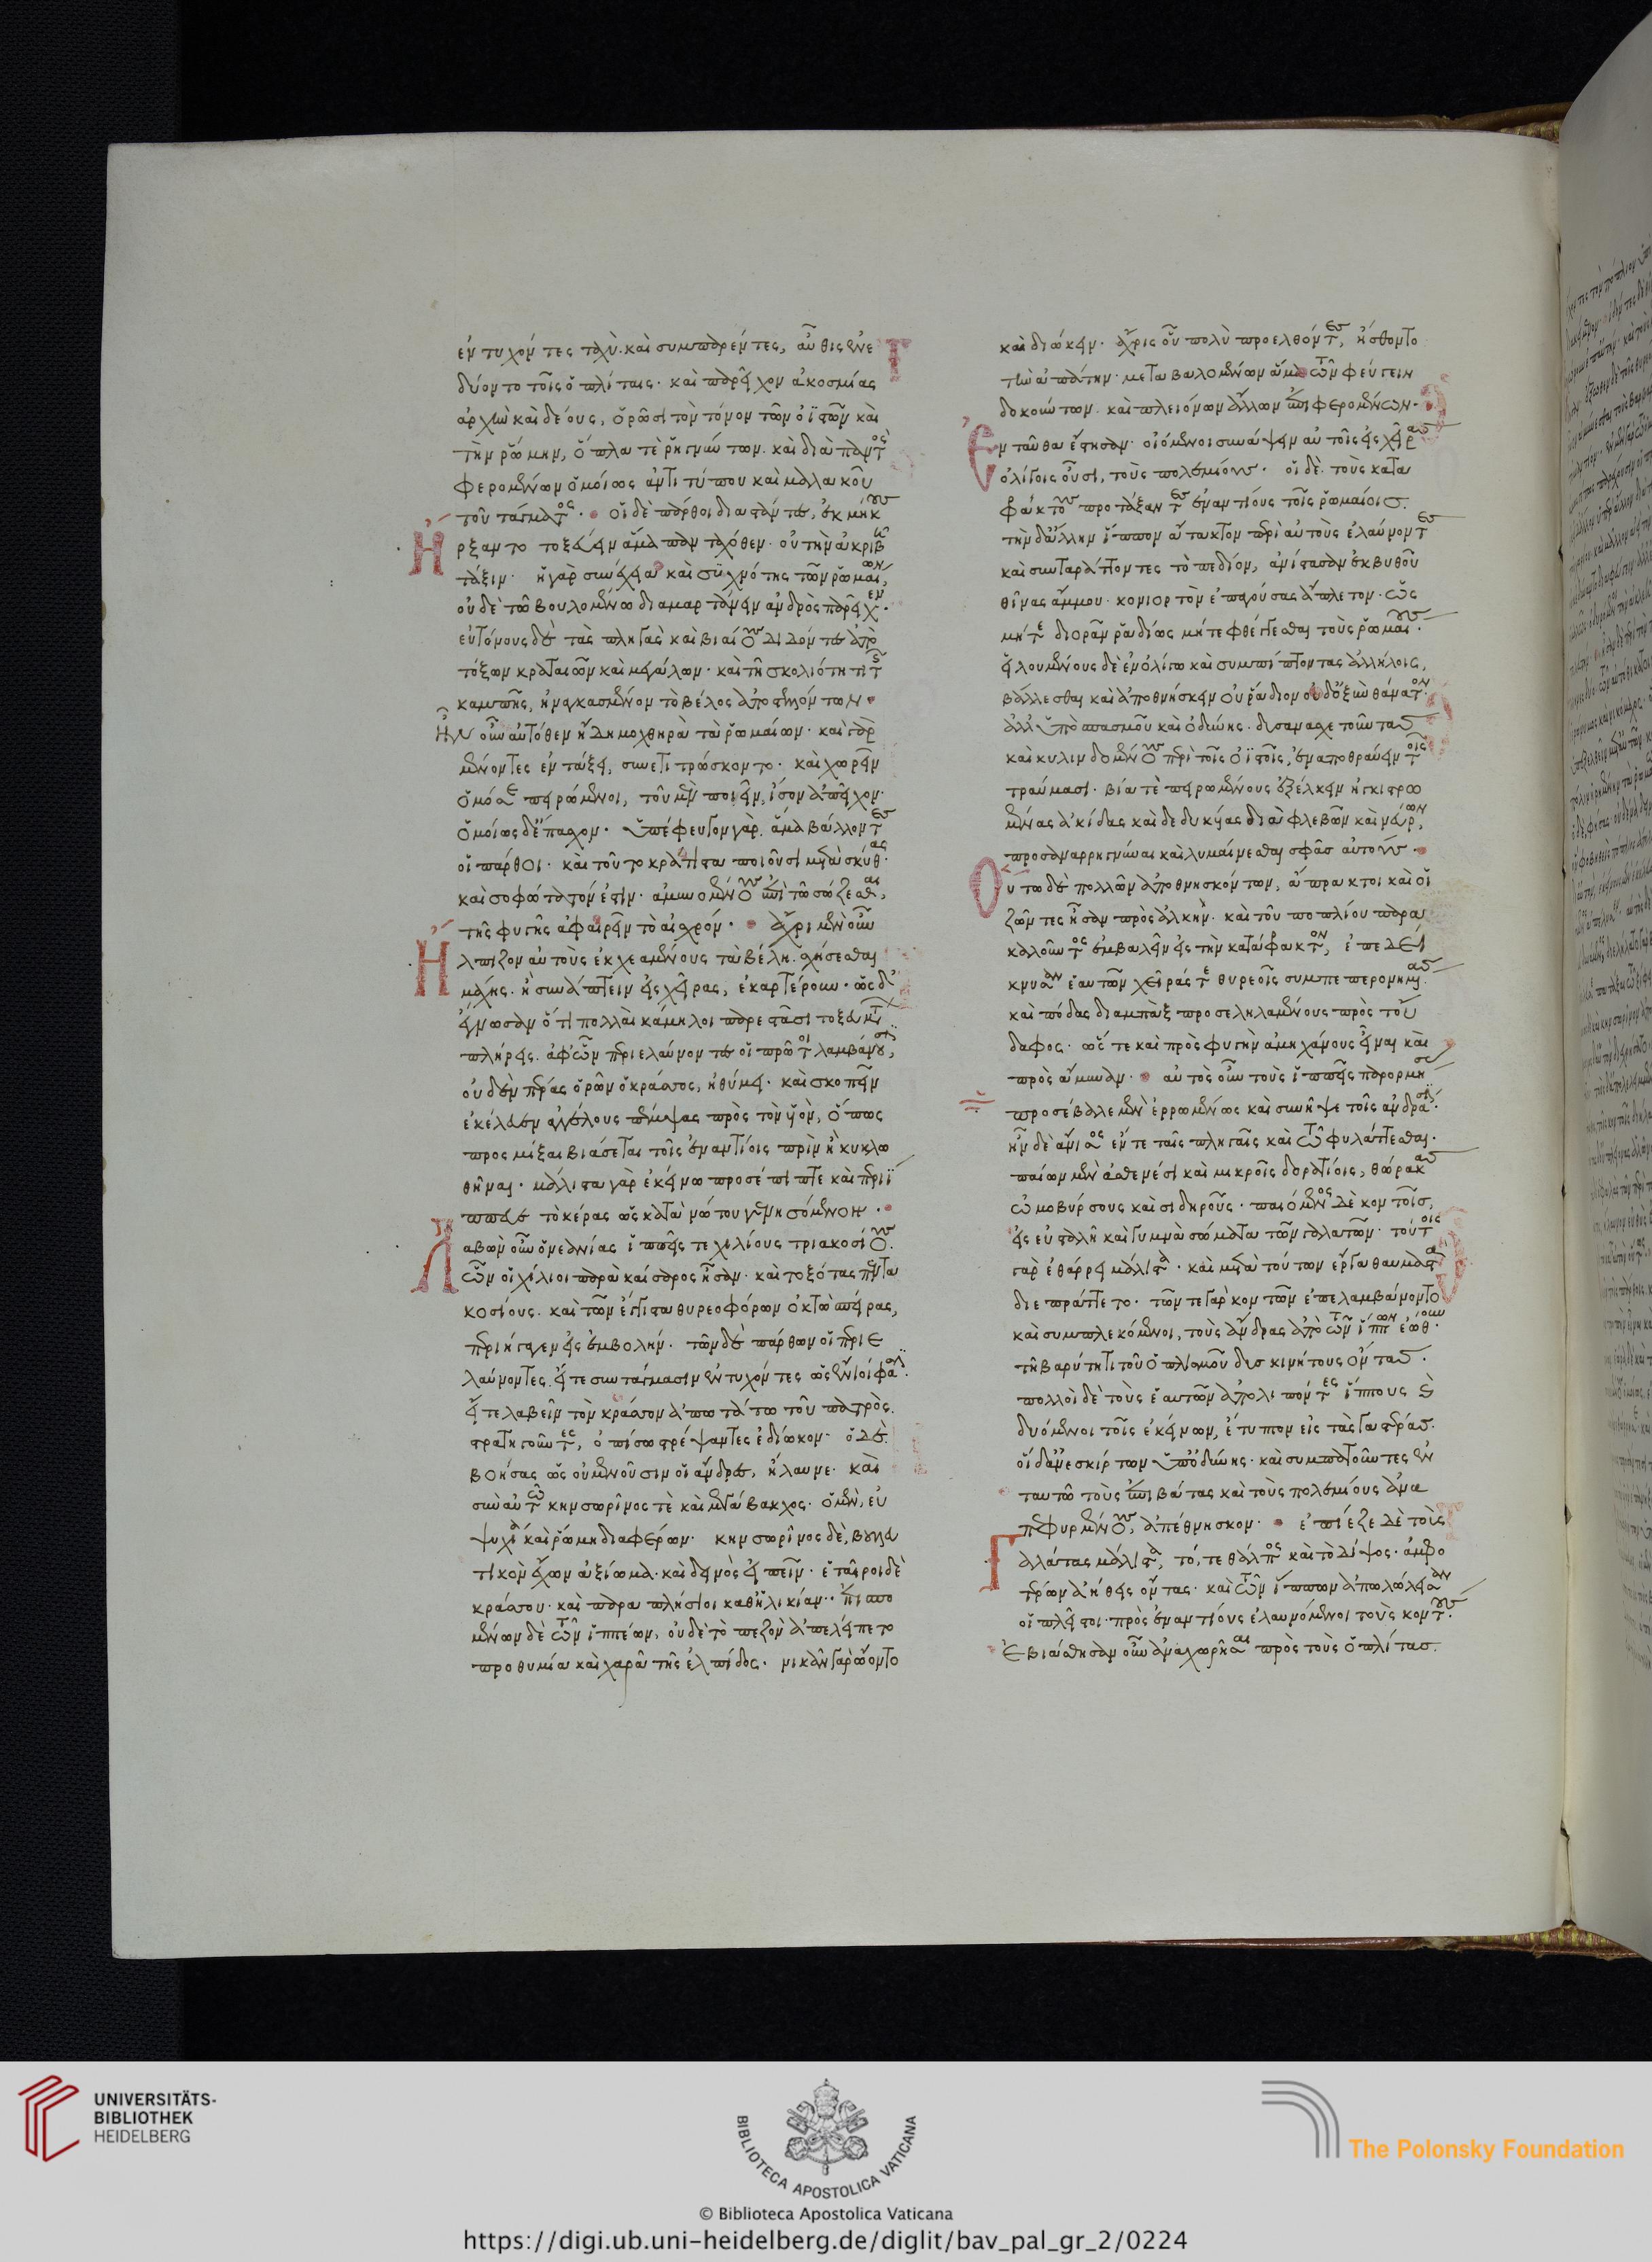 ἐντυχόντες ταχὺ. καὶ συμπαρέντες, αὖθις ἐνε
δύοντο τοῖς ὁπλίταις. καὶ παρεῖχον ἀκοσμίας
ἀρχὴν καὶ δέους, ὁρῶσι τὸν τόνον τῶν ὀϊστῶν καὶ
τὴν ῥώμην, ὅπλα τὲ ῥηγνύντων. καὶ διὰ παντὸς
φερομένων ὁμοίως ἀντιτύπου καὶ μαλακοῦ
τοῦ τάγματος. οἱ δὲ πάρθοι διαστάντες, ἐκ μήκους
Ἤρξαντο τοξεύειν ἅμα πανταχόθεν. οὐ τὴν ἀκριβῆ
τάξιν. ἡ γὰρ συνέχεια καὶ πυκνότης τῶν ῥωμαίων,
οὐδὲ τῶ βουλομένω διαμαρτάνειν ἀνδρὸς παρεῖχεν.
εὐτόνους δὲ τὰς πληγὰς καὶ βιαίους διδόντες ἀπὸ
τόξων κραταιῶν καὶ μεγάλων. καὶ τῆ σκολιότητι τῆς
καμπῆς, ἠναγκασμένον τὸ βέλος ἀποστελλόντων.
Ἦν οὖν αὐτόθεν ἤδη μοχθηρὰ τὰ ῥωμαίων. καὶ γὰρ
μένοντες ἐν τάξει, συνετιτρώσκοντο. καὶ χωρεῖν
ὁμόσε πειρώμενοι, τοῦ μὲν ποιεῖν, ἴσον ἀπεῖχον.
ὁμοίως δ' ἔπασχον. ὑπέφευγον γὰρ ἅμα βάλλοντες
οἱ πάρθοι. καὶ τοῦτο κράτιστα ποιοῦσι μετὰ σκύθας.
καὶ σοφώτατόν ἐστιν. ἀμυνομένους ἐπὶ τῶ σώζεσθαι,
τῆς φυγῆς ἀφαιρεῖν τὸ αἰσχρόν. ἄχρι μὲν οὖν
Ἤλπιζον αὐτοὺς ἐκχεαμένους τὰ βέλη. σχήσεσθαι
μάχης. ἢ συνάπτειν εἰς χεῖρας, ἐκαρτέρουν. ὡς δ'
ἔγνωσαν ὅτι πολλαὶ κάμηλοι παρεστᾶσι τοξευμάτων
πλήρεις. ἀφ' ὧν περιελαύνοντες οἱ πρῶτοι λαμβάνουσι,
οὐδὲν πέρας ὁρῶν ὁ κράσσος, ἠθύμει. καὶ σκοπεῖν
ἐκέλευεν ἀγγέλους πέμψας πρὸς τὸν υἱὸν, ὅπως
προσμίξαι βιάσεται τοῖς ἐναντίοις πρὶν ἢ κυκλω
θῆναι. μάλιστα γὰρ ἐκείνω προσέπιπτε καὶ περιΐ
ππευε τὸ κέρας ὡς κατὰ νώτου γενησόμενοι.
Λαβὼν οὖν ὁ νεανίας ἱππεῖς τε χιλίους τριακοσίους.
ὧν οἱ χίλιοι παρὰ καίσαρος ἦσαν. καὶ τοξότας πεντα
κοσίους. καὶ τῶν ἔγγιστα θυρεοφόρων ὀκτὼ σπείρας,
περιήγαγεν εἰς ἐμβολήν. τῶν δὲ πάρθων οἱ περιε
λαύνοντες. εἴτε συντάγμασιν ἐντυχόντες ὡς ἔνιοί φασι.
εἴτε λαβεῖν τὸν κράσσον ἀπωτάτω τοῦ πατρὸς
στρατηγοῦντες, ὀπίσω στρέψαντες ἐδίωκον. ὁ δὲ
βοήσας ὡς οὐ μένουσιν οἱ ἄνδρες, ἤλαυνε. καὶ
σὺν αὐτῶ κηνσωρῖνος τὲ καὶ μεγάβακχος. ὁ μὲν, εὐ
ψυχία καὶ ῥώμη διαφέρων. κηνσωρῖνος δὲ, βουλευ
τικὸν ἔχων ἀξίωμα. καὶ δεινὸς εἰπεῖν. ἑταῖροι δὲ
κράσσου. καὶ παραπλήσιοι καθ' ἡλικίαν. ἐπισπο
μένων δὲ τῶν ἱππέων, οὐδὲ τὸ πεζὸν ἀπελείπετο
προθυμία καὶ χαρᾶ τῆς ἐλπίδος. νικᾶν γὰρ ὤοντο
καὶ διώκειν. ἄχρις οὗ πολὺ προελθόντες, ἤσθοντο
τὴν ἀπάτην. μεταβαλομένων ἅμα τῶν φεύγειν
δοκούντων. καὶ πλειόνων ἄλλων ἐπιφερομένων.
Ἐνταῦθα ἔστησαν. οἰόμενοι συνάψειν αὐτοῖς εἰς χεῖρας
ὀλίγοις οὖσι, τοὺς πολεμίους. οἱ δὲ. τοὺς κατα
φράκτους προτάξαντες ἐναντίους τοῖς ῥωμαίοις.
τὴν δ' ἄλλην ἵππον ἄτακτον περὶ αὐτοὺς ἐλαύνοντες
καὶ συνταράττοντες τὸ πεδίον, ἀνίστασαν ἐκ βυθοῦ
θῖνας ἄμμου. κονιορτὸν ἐπαγούσας ἄπλετον. ὡς
μήτε διορᾶν ῥαδίως μήτε φθέγγεσθαι τοὺς ῥωμαίους.
εἱλουμένους δὲ ἐν ὀλίγω καὶ συμπίπτοντας ἀλλήλοις,
βάλλεσθαι καὶ ἀποθνήσκειν οὐ ῥάδιον οὐδ' ὀξὺν θάνατον.
ἀλλ' ὑπὸ σπασμοῦ καὶ ὀδύνης. δυσανασχετοῦντας
καὶ κυλινδομένους περὶ τοῖς ὀϊστοῖς, ἐναποθραύειν τοῖς
τραύμασι. βία τὲ πειρωμένους ἐξέλκειν ἠγκιστρω
μένας ἀκίδας καὶ δεδυκυίας διὰ φλεβῶν καὶ νεύρων,
προσαναρρηγνύναι καὶ λυμαίνεσθαι σφᾶς αὐτούς.
Οὕτω δὲ πολλῶν ἀποθνησκόντων, ἄπρακτοι καὶ οἱ
ζῶντες ἦσαν πρὸς ἀλκήν. καὶ τοῦ ποπλίου παρα
καλοῦντος ἐμβαλεῖν εἰς τὴν κατάφρακτον, ἐπεδεί
κνυσαν ἑαυτῶν χεῖράς τε θυρεοῖς συμπεπερονημένας.
καὶ πόδας διαμπὰξ προσεληλαμένους πρὸς τοὔ
δαφος. ὥστε καὶ πρὸς φυγὴν ἀμηχάνους εἶναι καὶ
πρὸς ἄμυναν. αὐτὸς οὖν τοὺς ἱππεῖς παρορμήσας
προσέβαλε μὲν ἐρρωμένως καὶ συνῆψε τοῖς ἀνδράσι.
ἦν δὲ ἄνισος ἔν τε ταῖς πληγαῖς καὶ τῶ φυλάττεσθαι.
παίων μὲν ἀσθενέσι καὶ μικροῖς δορατίοις, θώρακας
ὠμοβύρσους καὶ σιδηροῦς. παιόμενος δὲ κοντοῖς,
εἰς εὐσταλῆ καὶ γυμνὰ σώματα τῶν γαλατῶν. τούτοις
γὰρ ἐθάρρει μάλιστα. καὶ μετὰ τούτων ἔργα θαυμαστὰ
διεπράττετο. τῶν τε γὰρ κοντῶν ἐπελαμβάνοντο
καὶ συμπλεκόμενοι, τοὺς ἄνδρας ἀπὸ τῶν ἵππων ἐώθουν
τῆ βαρύτητι τοῦ ὁπλισμοῦ δυσκινήτους ὄντας.
πολλοὶ δὲ τοὺς ἑαυτῶν ἀπολιπόντες ἵππους καὶ
δυόμενοι τοῖς ἐκείνων, ἔτυπτον εἰς τὰς γαστέρας.
οἱ δ' ἀνεσκίρτων ὑπ' ὀδύνης. καὶ συμπατοῦντες ἐν
ταυτῶ τοὺς ἐπιβάτας καὶ τοὺς πολεμίους ἀνα
πεφυρμένους, ἀπέθνησκον. ἐπίεζε δὲ τοὺς
Γαλάτας μάλιστα, τό, τε θάλπος καὶ τὸ δίψος. ἀμφο
τέρων ἀήθεις ὄντας. καὶ τῶν ἵππων ἀπωλώλεισαν
οἱ πλεῖστοι πρὸς ἐναντίους ἐλαυνόμενοι τοὺς κοντούς.
Ἐβιάσθησαν οὖν ἀναχωρῆσαι πρὸς τοὺς ὁπλίτας.
UNIVERSITÄTS-
BIBLIOTHEK
HEIDELBERG
BIBLIOTECA APOSTOLICA VATICANA
The Polonsky Foundation
© Biblioteca Apostolica Vaticana
https://digi.ub.uni-heidelberg.de/diglit/bav_pal_gr_2/0224